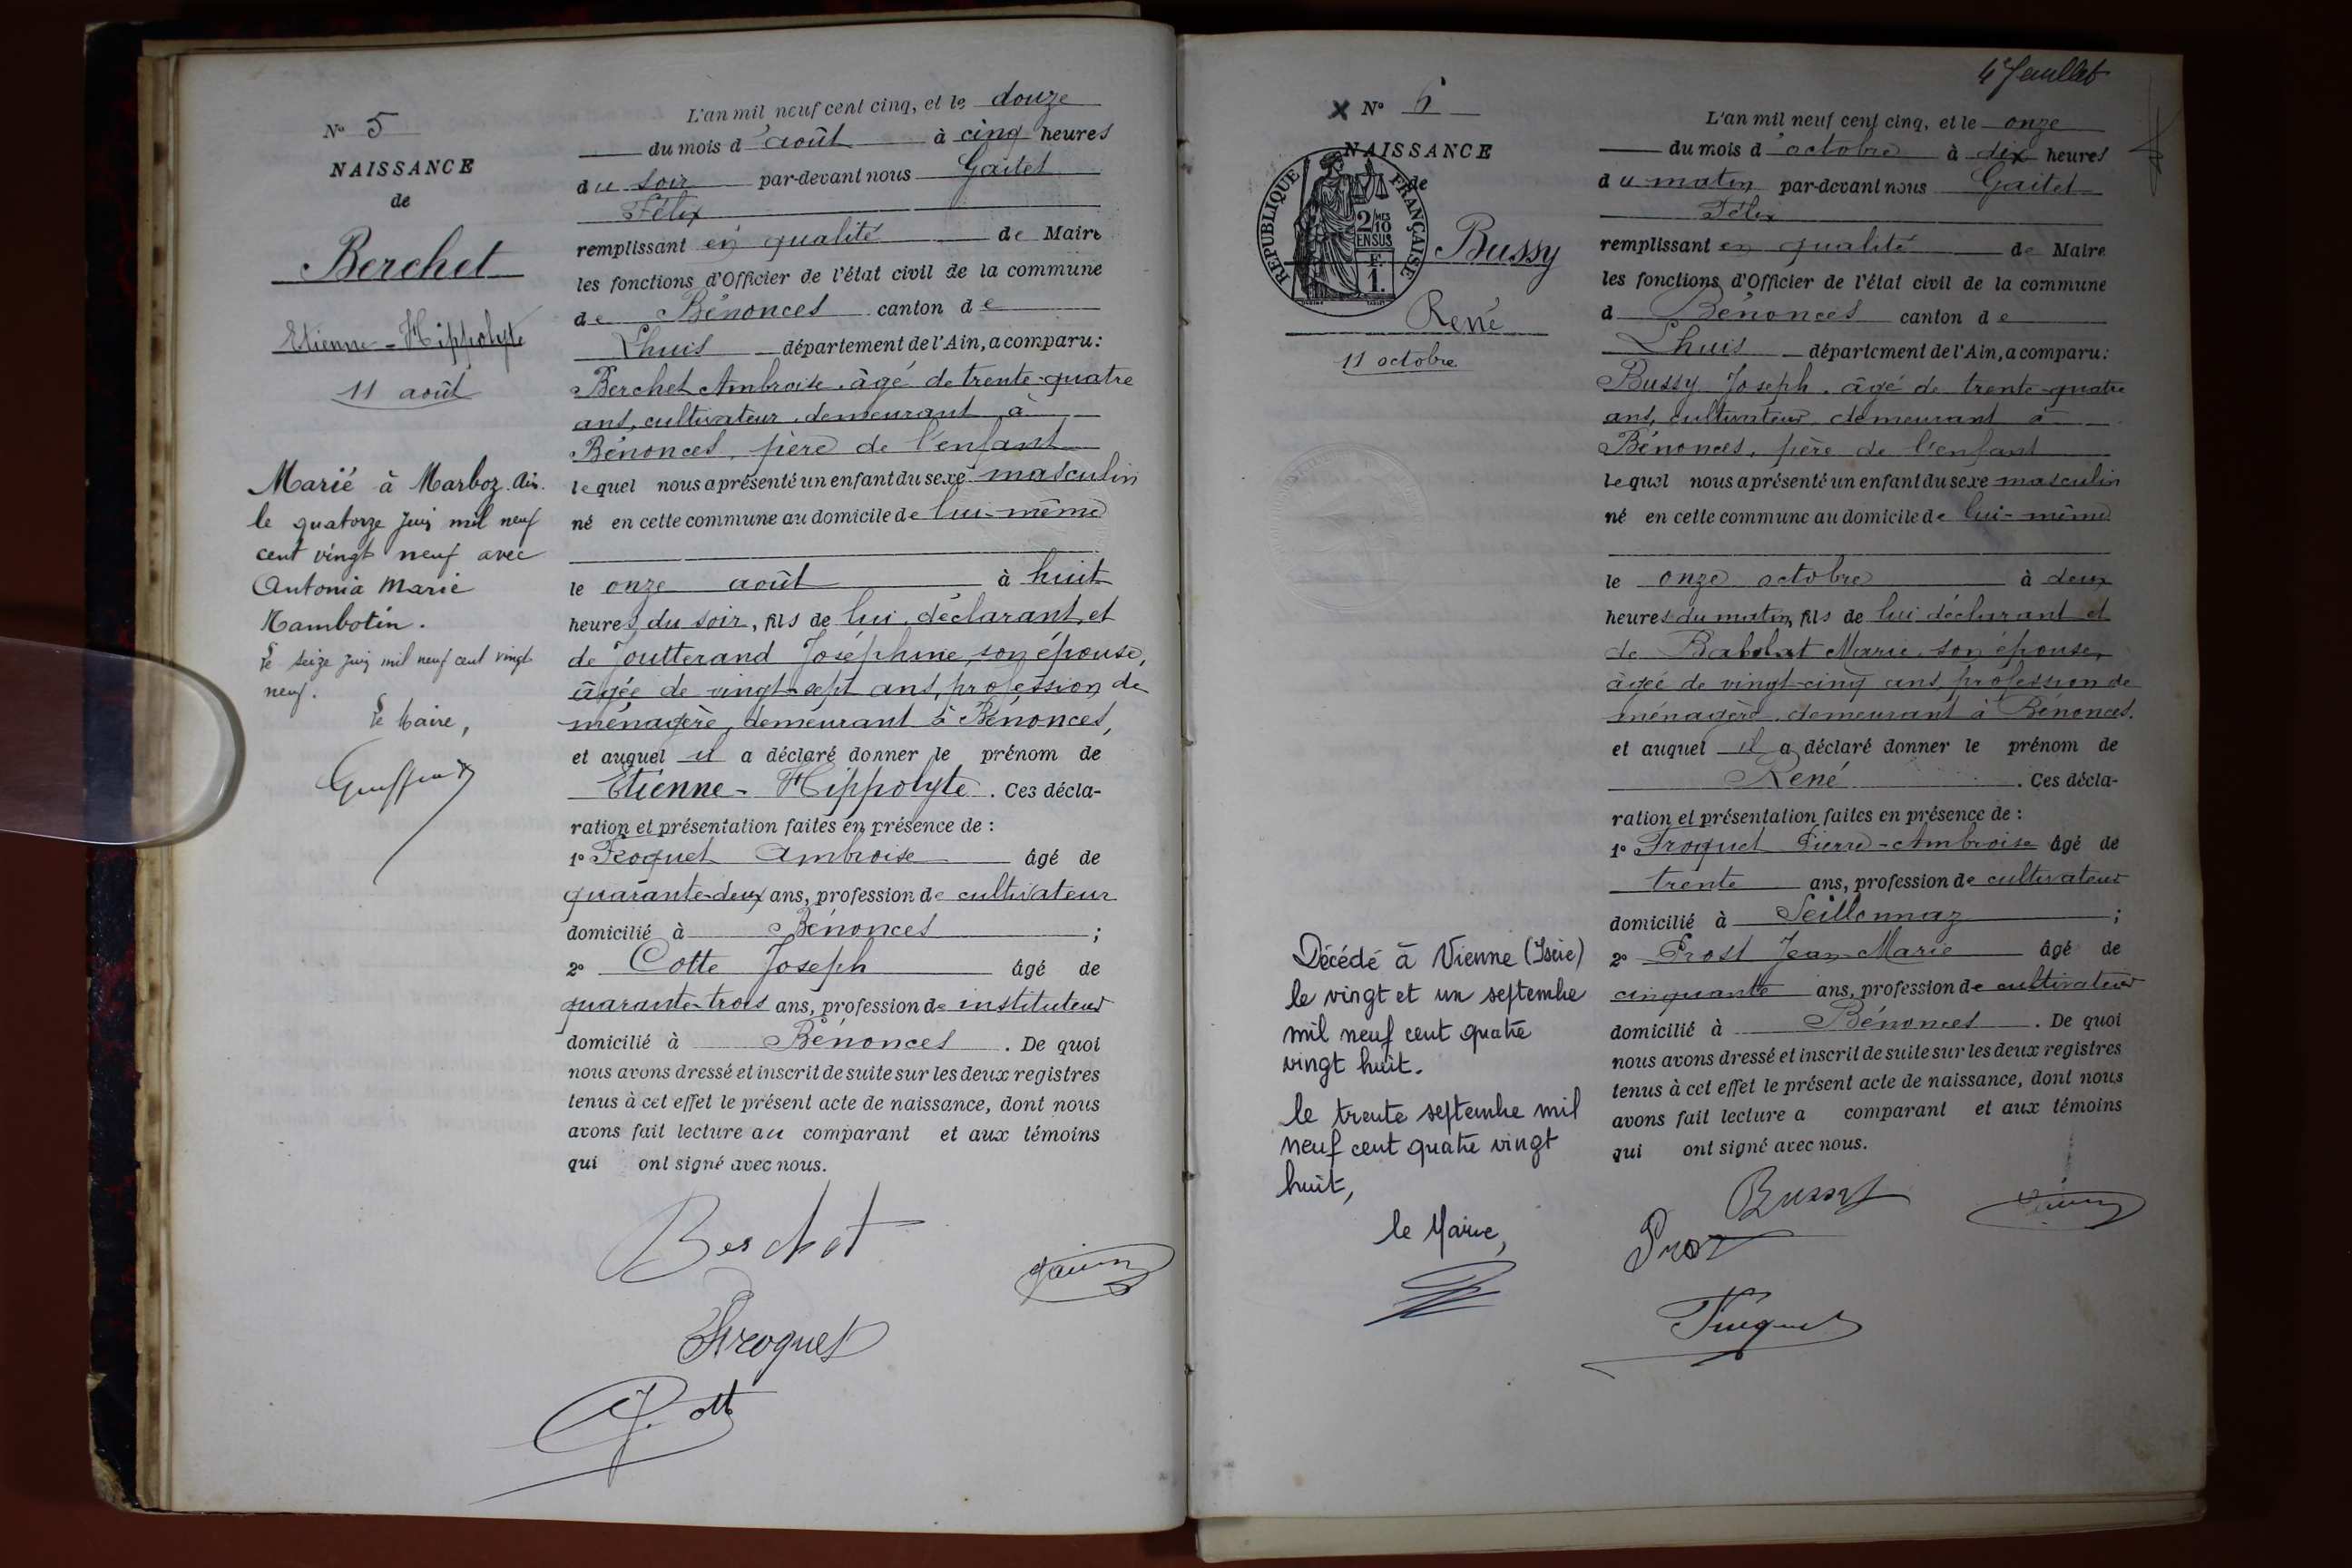 N° 5
NAISSANCE
de
Berchet
Etienne-Hippolyte
11 août
Marié à Marboz. Ain.
le quatorze juin mil neuf
cent vingt neuf avec
Antonia Marie
Mambotin.
Le seize juin mil neuf cent vingt
neuf.
Le Maire,
L'an mil neuf cent cinq, et le douze
du mois d'août à cinq heures
du soir par-devant nous Gaitet
Félix
remplissant en qualité de Maire
les fonctions d'Officier de l'état civil de la commune
de Bénonces canton de
Lhuis département de l'Ain, a comparu:
Berchet Ambroise, âgé de trente-quatre
ans, cultivateur, demeurant à
Bénonces, père de l'enfant
lequel nous a présenté un enfant du sexe masculin
né en cette commune au domicile de lui-même
le onze août à huit
heures du soir, fils de lui, déclarant, et
de Joutterand Joséphine, son épouse,
âgée de vingt-sept ans, profession de
ménagère, demeurant à Bénonces,
et auquel il a déclaré donner le prénom de
Etienne-Hippolyte. Ces décla-
ration et présentation faites en présence de :
1° Froquet Ambroise âgé de
quarante-deux ans, profession de cultivateur
domicilié à Bénonces ;
2° Cotte Joseph âgé de
quarante-trois ans, profession de instituteur
domicilié à Bénonces. De quoi
nous avons dressé et inscrit de suite sur les deux registres
tenus à cet effet le présent acte de naissance, dont nous
avons fait lecture au comparant et aux témoins
qui ont signé avec nous.
Berchet
Froquet
4e feuillet
X N° 6
NAISSANCE
de
REPUBLIQUE FRANÇAISE
2/10 MES
EN SUS
F.
1.
Bussy
René
11 octobre
Décédé à Vienne (Isère)
le vingt et un septembre
mil neuf cent quatre
vingt huit.
le trente septembre mil
neuf cent quatre vingt
huit,
le Maire,
L'an mil neuf cent cinq, et le onze
du mois d'octobre à dix heures
du matin par-devant nous Gaitet
Félix
remplissant en qualité de Maire
les fonctions d'Officier de l'état civil de la commune
d Bénonces canton de
Lhuis département de l'Ain, a comparu:
Bussy Joseph, âgé de trente-quatre
ans, cultivateur demeurant à
Bénonces, père de l'enfant
lequel nous a présenté un enfant du sexe masculin
né en cette commune au domicile de lui-même
le onze octobre à deux
heures du matin, fils de lui déclarant et
de Babolat Marie, son épouse,
âgée de vingt-cinq ans, profession de
ménagère, demeurant à Bénonces.
et auquel il a déclaré donner le prénom de
René. Ces décla-
ration et présentation faites en présence de :
1° Froquet Pierre-Ambroise âgé de
trente ans, profession de cultivateur
domicilié à Seillonnaz ;
2° Prost Jean-Marie âgé de
cinquante ans, profession de cultivateur
domicilié à Bénonces. De quoi
nous avons dressé et inscrit de suite sur les deux registres
tenus à cet effet le présent acte de naissance, dont nous
avons fait lecture a comparant et aux témoins
qui ont signé avec nous.
Bussy
Prost
Froquet